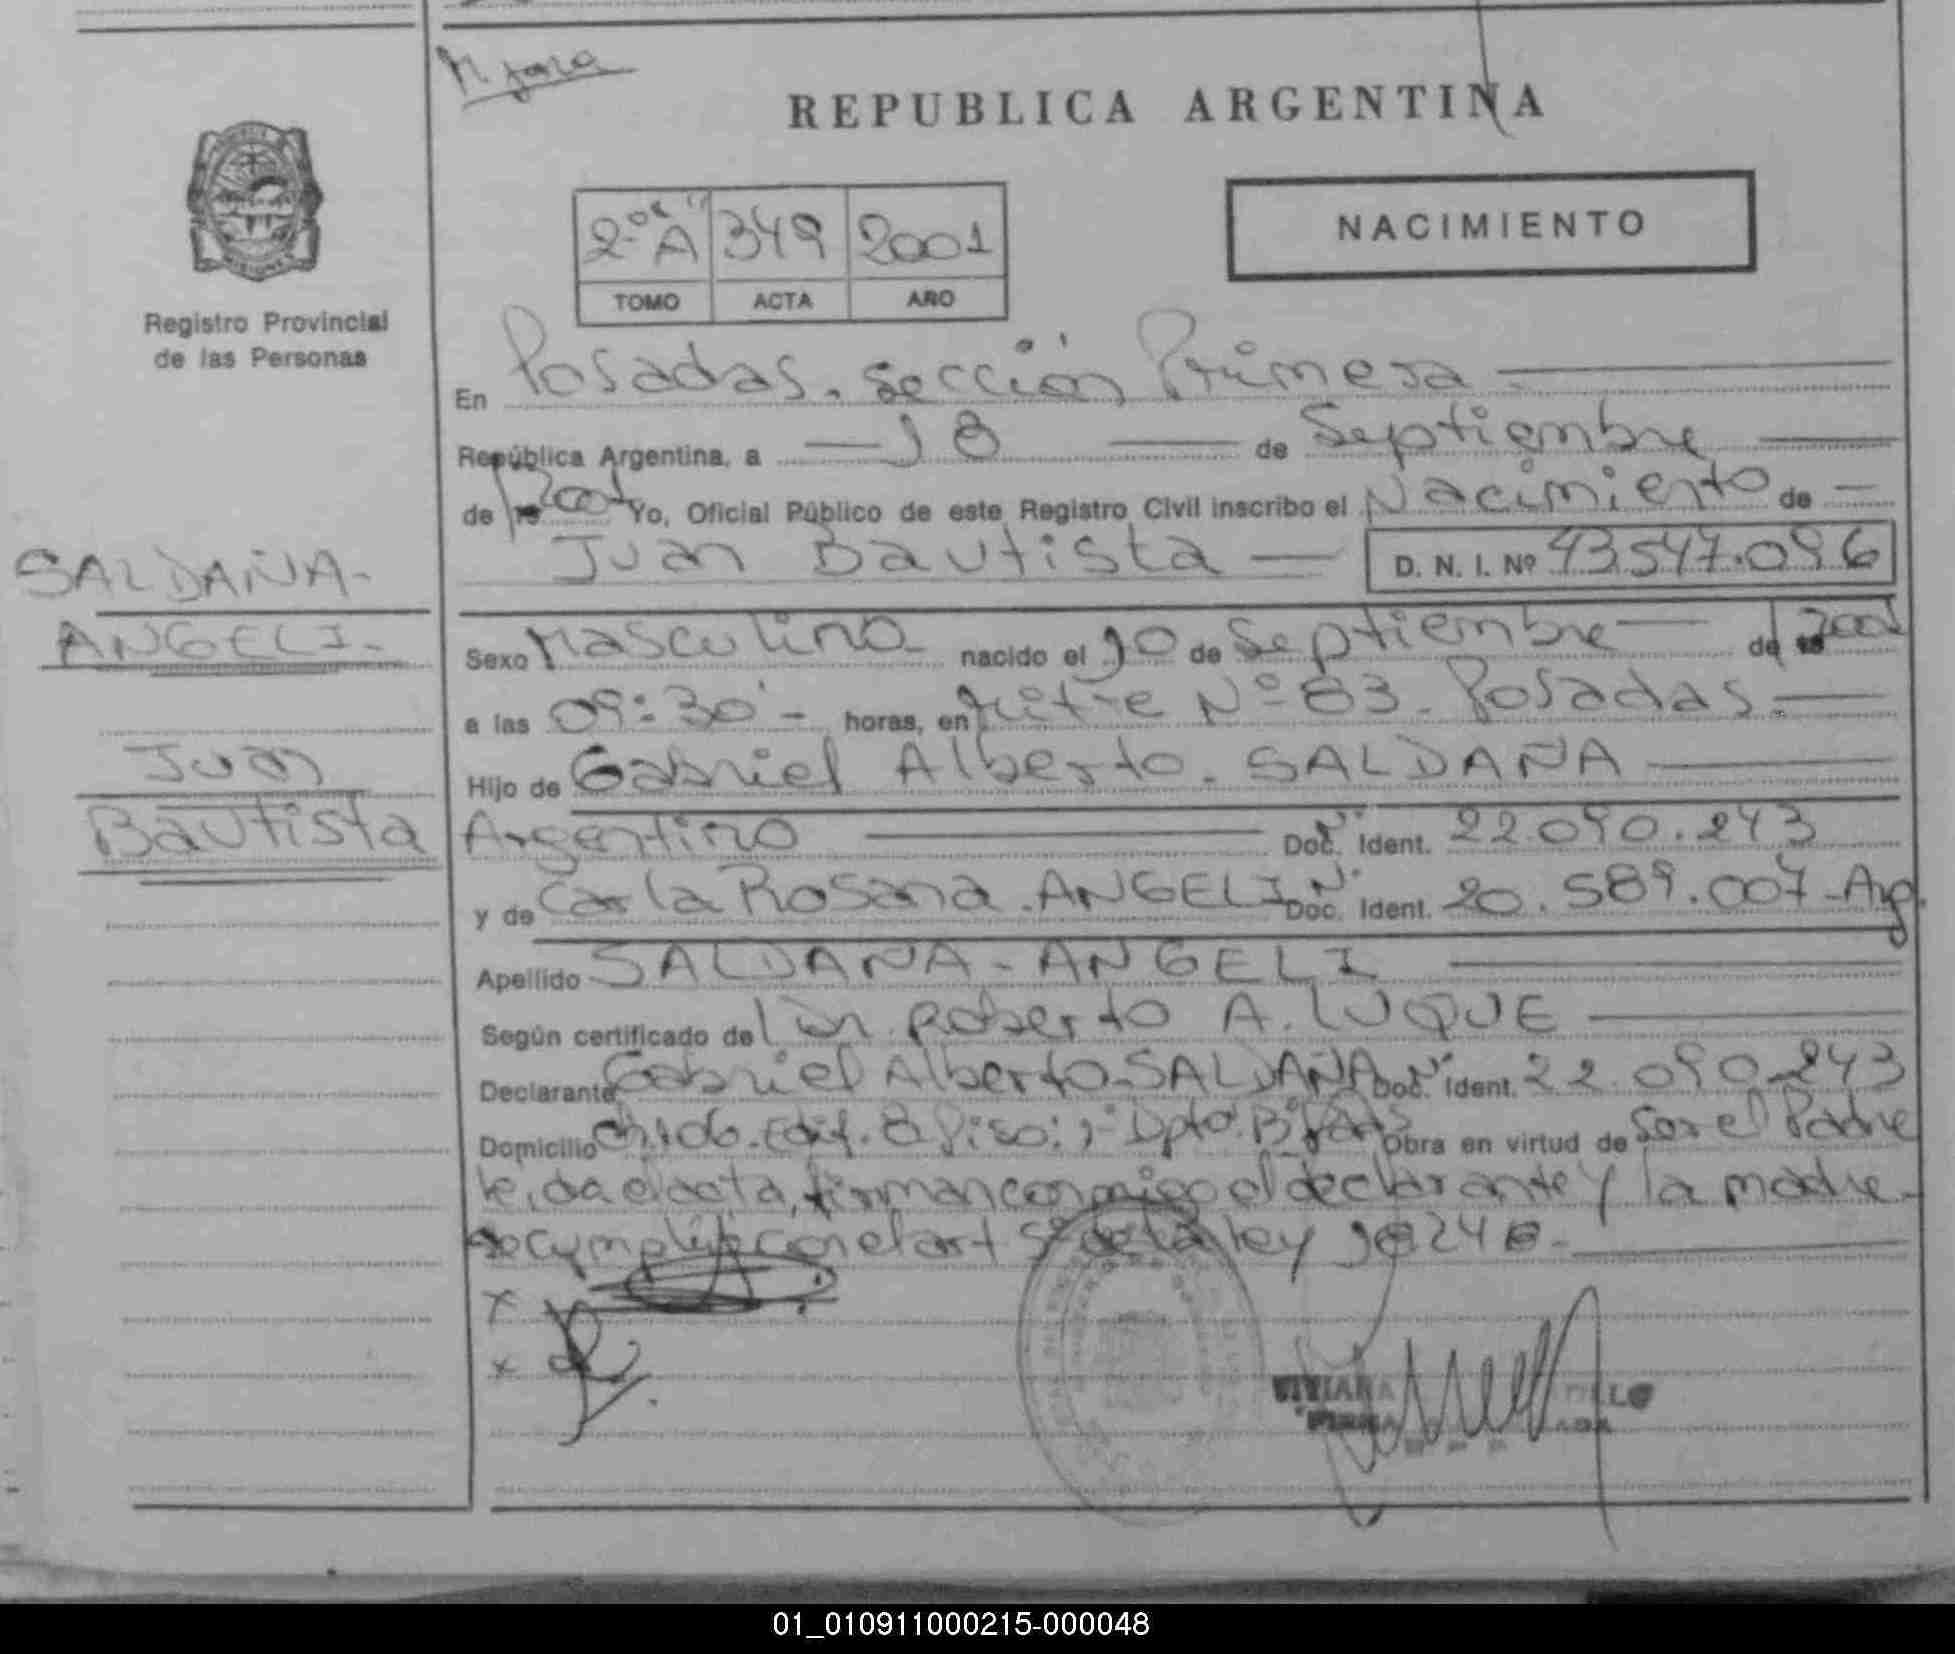 REPUBLICA ARGENTINA
NACIMIENTO
2º "A" 349 2001
TOMO ACTA AÑO
Registro Provincial
de las Personas
En Posadas. Sección Primera
República Argentina, a 18 de Septiembre
de 19 2001 Yo, Oficial Público de este Registro Civil inscribo el Nacimiento de
Juan Bautista D. N. I. Nº 43.547.096
SALDAÑA-
ANGELI-
Juan
Bautista
Sexo Masculino nacido el 10 de Septiembre de 19 2001
a las 09:30' horas, en Mitre Nº 83. Posadas.
Hijo de Gabriel Alberto. SALDAÑA
Argentino Doc. Ident. Nº 22.090.243
y de Carla Rosana. ANGELI Doc. Ident. Nº 20.589.007-Arg.
Apellido SALDAÑA-ANGELI
Según certificado de Roberto A. LUQUE
Declarante Gabriel Alberto-SALDAÑA Doc. Ident. Nº 22.090.243
Domicilio Ch.106. Edif. 8 Piso: 1- Dpto. B Obra en virtud de Ser el Padre
leída el acta, firman conmigo el declarante y la madre-
se cumplió con el art 5º de la ley
VIVIANA
01_010911000215-000048